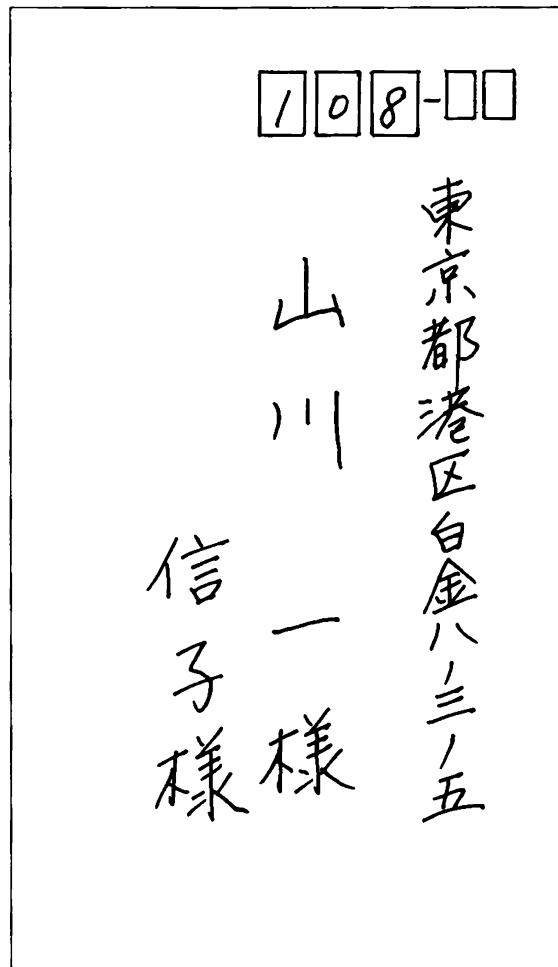 108-
東京都港区白金八ノ三ノ五
山川 一様
信子様